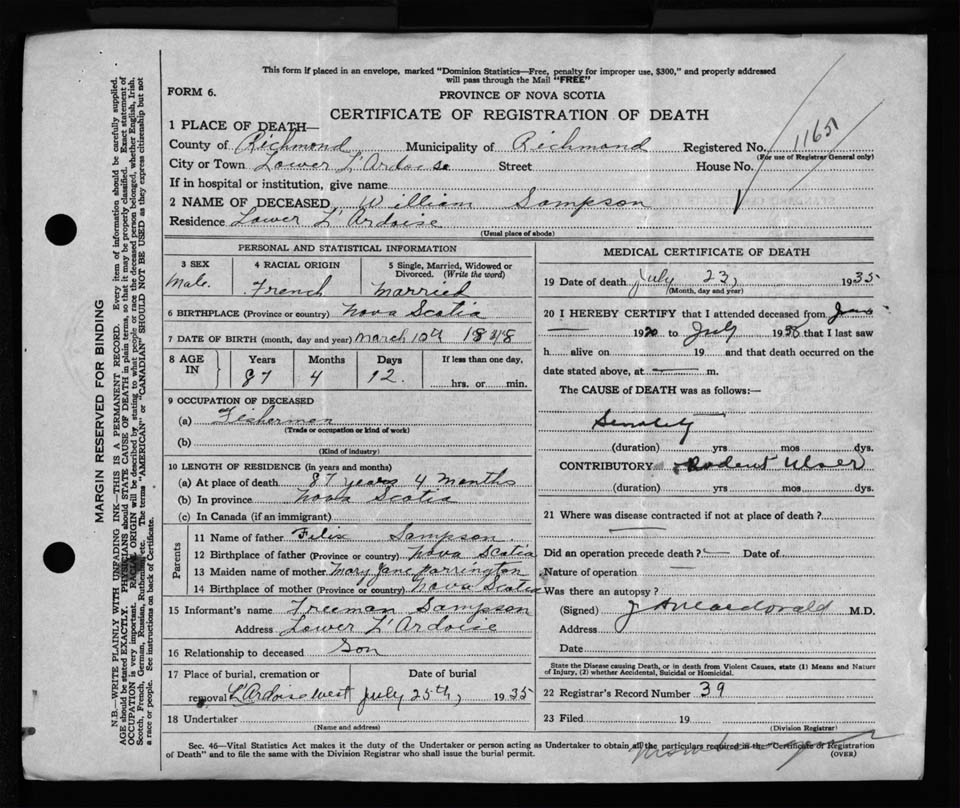 This form if placed in an envelope, marked "Dominion Statistics—Free, penalty for improper use, $300," and properly addressed
will pass through the Mail "FREE"
FORM 6.
PROVINCE OF NOVA SCOTIA
CERTIFICATE OF REGISTRATION OF DEATH
1 PLACE OF DEATH—
County of Richmond Municipality of Richmond Registered No. 11651
(For use of Registrar General only)
City or Town Lower L'Ardoise Street House No.
If in hospital or institution, give name
2 NAME OF DECEASED William Sampson
Residence Lower L'Ardoise
(Usual place of abode)
PERSONAL AND STATISTICAL INFORMATION
3 SEX 4 RACIAL ORIGIN 5 Single, Married, Widowed or
Divorced. (Write the word)
Male. French Married
6 BIRTHPLACE (Province or country) Nova Scotia
7 DATE OF BIRTH (month, day and year) March 10th 1848
8 AGE IN Years Months Days If less than one day,
87 4 12. hrs. or min.
9 OCCUPATION OF DECEASED
(a) Fisherman
(Trade or occupation or kind of work)
(b)
(Kind of industry)
10 LENGTH OF RESIDENCE (in years and months)
(a) At place of death 87 years 4 months
(b) In province Nova Scotia
(c) In Canada (if an immigrant)
Parents
11 Name of father Felix Sampson.
12 Birthplace of father (Province or country) Nova Scotia
13 Maiden name of mother Mary Jane
14 Birthplace of mother (Province or country) Nova Scotia
15 Informant's name Freeman Sampson
Address Lower L'Ardoise
16 Relationship to deceased Son
17 Place of burial, cremation or Date of burial
removal L'Ardoise West July 25th, 1935
18 Undertaker
(Name and address)
MEDICAL CERTIFICATE OF DEATH
19 Date of death July 23, 1935
(Month, day and year)
20 I HEREBY CERTIFY that I attended deceased from
19 to July 19 that I last saw
h alive on 19 and that death occurred on the
date stated above, at m.
The CAUSE of DEATH was as follows:—
Senility
(duration) yrs mos dys.
CONTRIBUTORY Rodent Ulcer
(duration) yrs mos dys.
21 Where was disease contracted if not at place of death?
Did an operation precede death? Date of
Nature of operation
Was there an autopsy?
(Signed) Macdonald M.D.
Address
Date
State the Disease causing Death, or in death from Violent Causes, state (1) Means and Nature
of Injury, (2) whether Accidental, Suicidal or Homicidal.
22 Registrar's Record Number 39
23 Filed 19
(Division Registrar)
Sec. 46—Vital Statistics Act makes it the duty of the Undertaker or person acting as Undertaker to obtain all the particulars required in the Certificate of Registration
of Death" and to file the same with the Division Registrar who shall issue the burial permit.
(OVER)
MARGIN RESERVED FOR BINDING
N.B.—WRITE PLAINLY WITH UNFADING INK—THIS IS A PERMANENT RECORD. Every item of information should be carefully supplied.
AGE should be stated EXACTLY. PHYSICIANS should STATE CAUSE OF DEATH in plain terms, so that it may be properly classified. Exact statement of
OCCUPATION is very important. RACIAL ORIGIN will be described by stating to what people or race the deceased person belonged, whether English, Irish,
Scotch, French, German, Russian, Ruthenian, etc. The terms "AMERICAN" or "CANADIAN" SHOULD NOT BE USED as they express citizenship but not
a race or people. See instructions on back of Certificate.